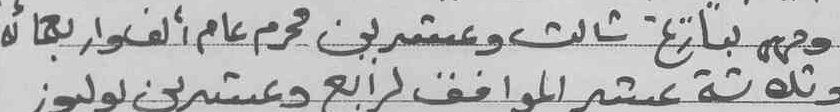 وحرر بتاريخ ثالث وعشرين محرم عام ألف واربعمائة
وثلاثة عشر الموافق لرابع وعشرين يوليوز